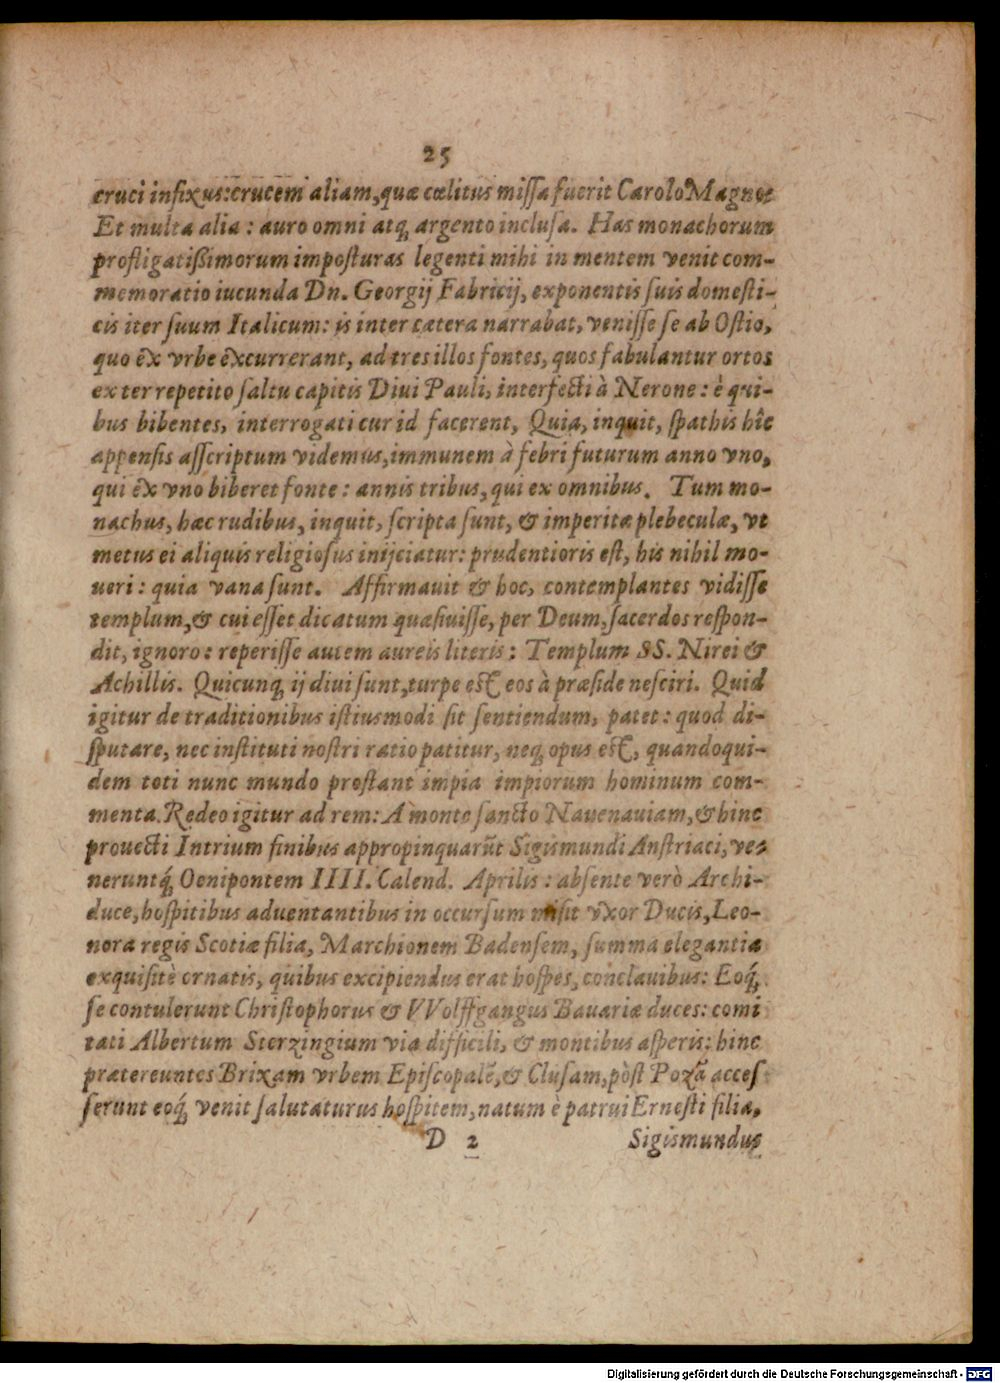 25
cruci infixus: crucem aliam, quæ cœlitus miſſa fuerit Carolo Magno:
Et multa alia: auro omni atq; argento incluſa. Has monachorum
profligatißimorum impoſturas legenti mihi in mentem venit com-
memoratio iucunda Dn. Georgij Fabricij, exponentis ſuis domeſti-
cis iter ſuum Italicum: is inter cætera narrabat, veniſſe ſe ab Oſtio,
quo ex vrbe excurrerant, ad tres illos fontes, quos fabulantur ortos
ex ter repetito ſaltu capitis Diui Pauli, interfecti à Nerone: è qui-
bus bibentes, interrogati cur id facerent, Quia, inquit, ſpathis hîc
appenſis aſſcriptum videmus, immunem à febri futurum anno vno,
qui ex vno biberet fonte: annis tribus, qui ex omnibus. Tum mo-
nachus, hæc rudibus, inquit, ſcripta ſunt, & imperitæ plebeculæ, vt
metus ei aliquis religioſus inijciatur: prudentioris eſt, his nihil mo-
ueri: quia vana ſunt. Affirmauit & hoc, contemplantes vidiſſe
templum, & cui eſſet dicatum quæſiuiſſe, per Deum, ſacerdos reſpon-
dit, ignoro: reperiſſe autem aureis literis: Templum SS. Nirei &
Achillis. Quicunq; ij diui ſunt, turpe eſt eos à præſide neſciri. Quid
igitur de traditionibus iſtiusmodi ſit ſentiendum, patet: quod di-
ſputare, nec inſtituti noſtri ratio patitur, neq; opus eſt, quandoqui-
dem toti nunc mundo proſtant impia impiorum hominum com-
menta. Redeo igitur ad rem: A monte ſancto Nauenauiam, & hinc
prouecti Intrium finibus appropinquarūt Sigismundi Auſtriaci, ve-
neruntq́; Oenipontem IIII. Calend. Aprilis: abſente verò Archi-
duce, hoſpitibus aduentantibus in occurſum miſit vxor Ducis, Leo-
nora regis Scotiæ filia, Marchionem Badenſem, ſumma elegantia
exquiſitè ornatis, quibus excipiendus erat hoſpes, conclauibus: Eoq́;
ſe contulerunt Chriſtophorus & VVolffgangus Bauariæ duces: comi
tati Albertum Sterzingium via difficili, & montibus aſperis: hinc
prætereuntes Brixam vrbem Epiſcopalē, & Cluſam, pòſt Pozā acceſ
ſerunt eoq́; venit ſalutaturus hoſpitem, natum è patrui Erneſti filia,
D 2 Sigismundus
Digitalisierung gefördert durch die Deutsche Forschungsgemeinschaft - DFG